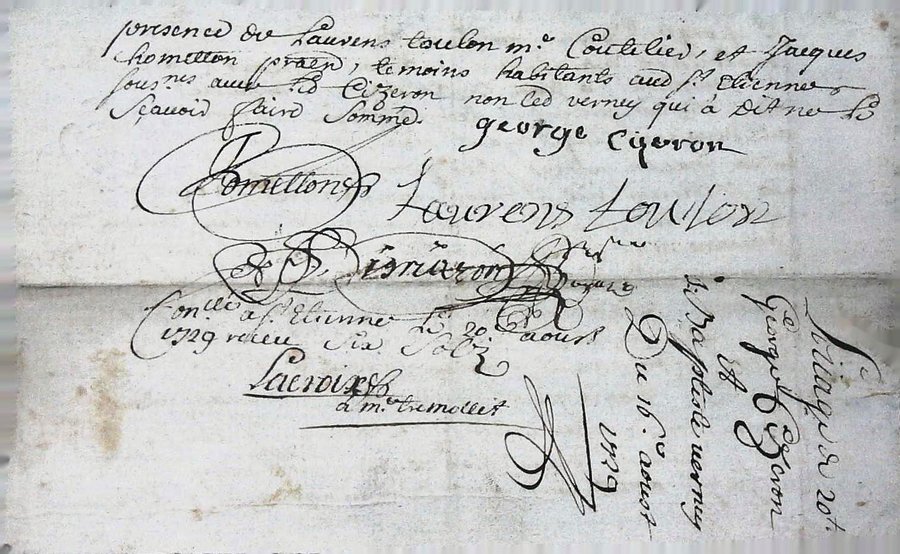 presence de Laurens toulon m.e Coutelier, et Jacques
Chometton praen, temoins habitants aud.t S.t Etienne
sous.nes avec led Cizeron non led verney qui a dit ne le
Scavoir faire Sommé.
george Cizeron
Chometton
Laurens toulon
Con.llé a S.t Etienne le 20 aoust
1729 receu Six Sols
Lacroix
a m.e tremollet
Loüage de 20 tt
George Cizeron
Et
Baptiste verney
Du 16.e aoust
1729